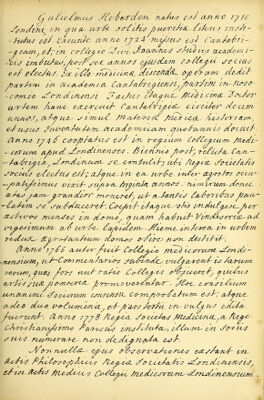 Gulielmus Heberden natus est anno 1710
Londini, in qua urbe solitis pueritiæ literis insti-
tutus est. Exeunte anno 1724 missus est Cantabri-
giam, et, in collegio Divi Joannis studiis academi-
cis imbutus, post sex annos ejusdem collegii socius
est electus. Ex illo medicinæ discendæ operam dedit
partim in Academia Cantabrigiensi, partim in Noso-
comio Londinensi. Factus itaque Medicinæ Doctor
artem hanc exercuit Cantabrigiæ circiter decem
annos, atque simul Materiæ Medicæ historiam
et usus Juventutem academicam quotannis docuit.
Anno 1746 cooptatus est in regium collegium medi-
corum apud Londinenses. Biennio post, relicta Can-
tabrigia, Londinum se contulit, ubi Regiæ Societatis
socius electus est; atque in ea urbe inter ægrotos occu-
patissimus vixit supra triginta annos.
ætas jam grandior moneret, ut a tantis laboribus pau-
latim se subduceret. Coepit itaque sibi indulgere per
æstivos menses in domo, quam habuit Vindesoriæ ad
vigesimum ab urbe lapidem. Hieme interea in urbem
redux ægrotantium domos obire non destitit.
Anno 1766 autor fuit Collegio medicorum Londi-
nensium, ut Commentarios subinde vulgarent istarum
rerum, quæ fors uni ex Collegis objiceret, quibus
artis suæ pomœria promoverentur. Hoc consilium
unanimi Sociorum consensu comprobatum est; atque
adeo duo volumina, et pars tertii in vulgus edita
fuerunt. Anno 1778 Regia Societas Medicina, a Rege
Christianissimo Parisiis instituta, illum in sociis
suis numerare non dedignata est.
Nonnullæ ejus observationes extant in
actis Philosophicis Regiæ Societatis Londinensis,
et in actis Medicis Collegii medicorum Londinensium.